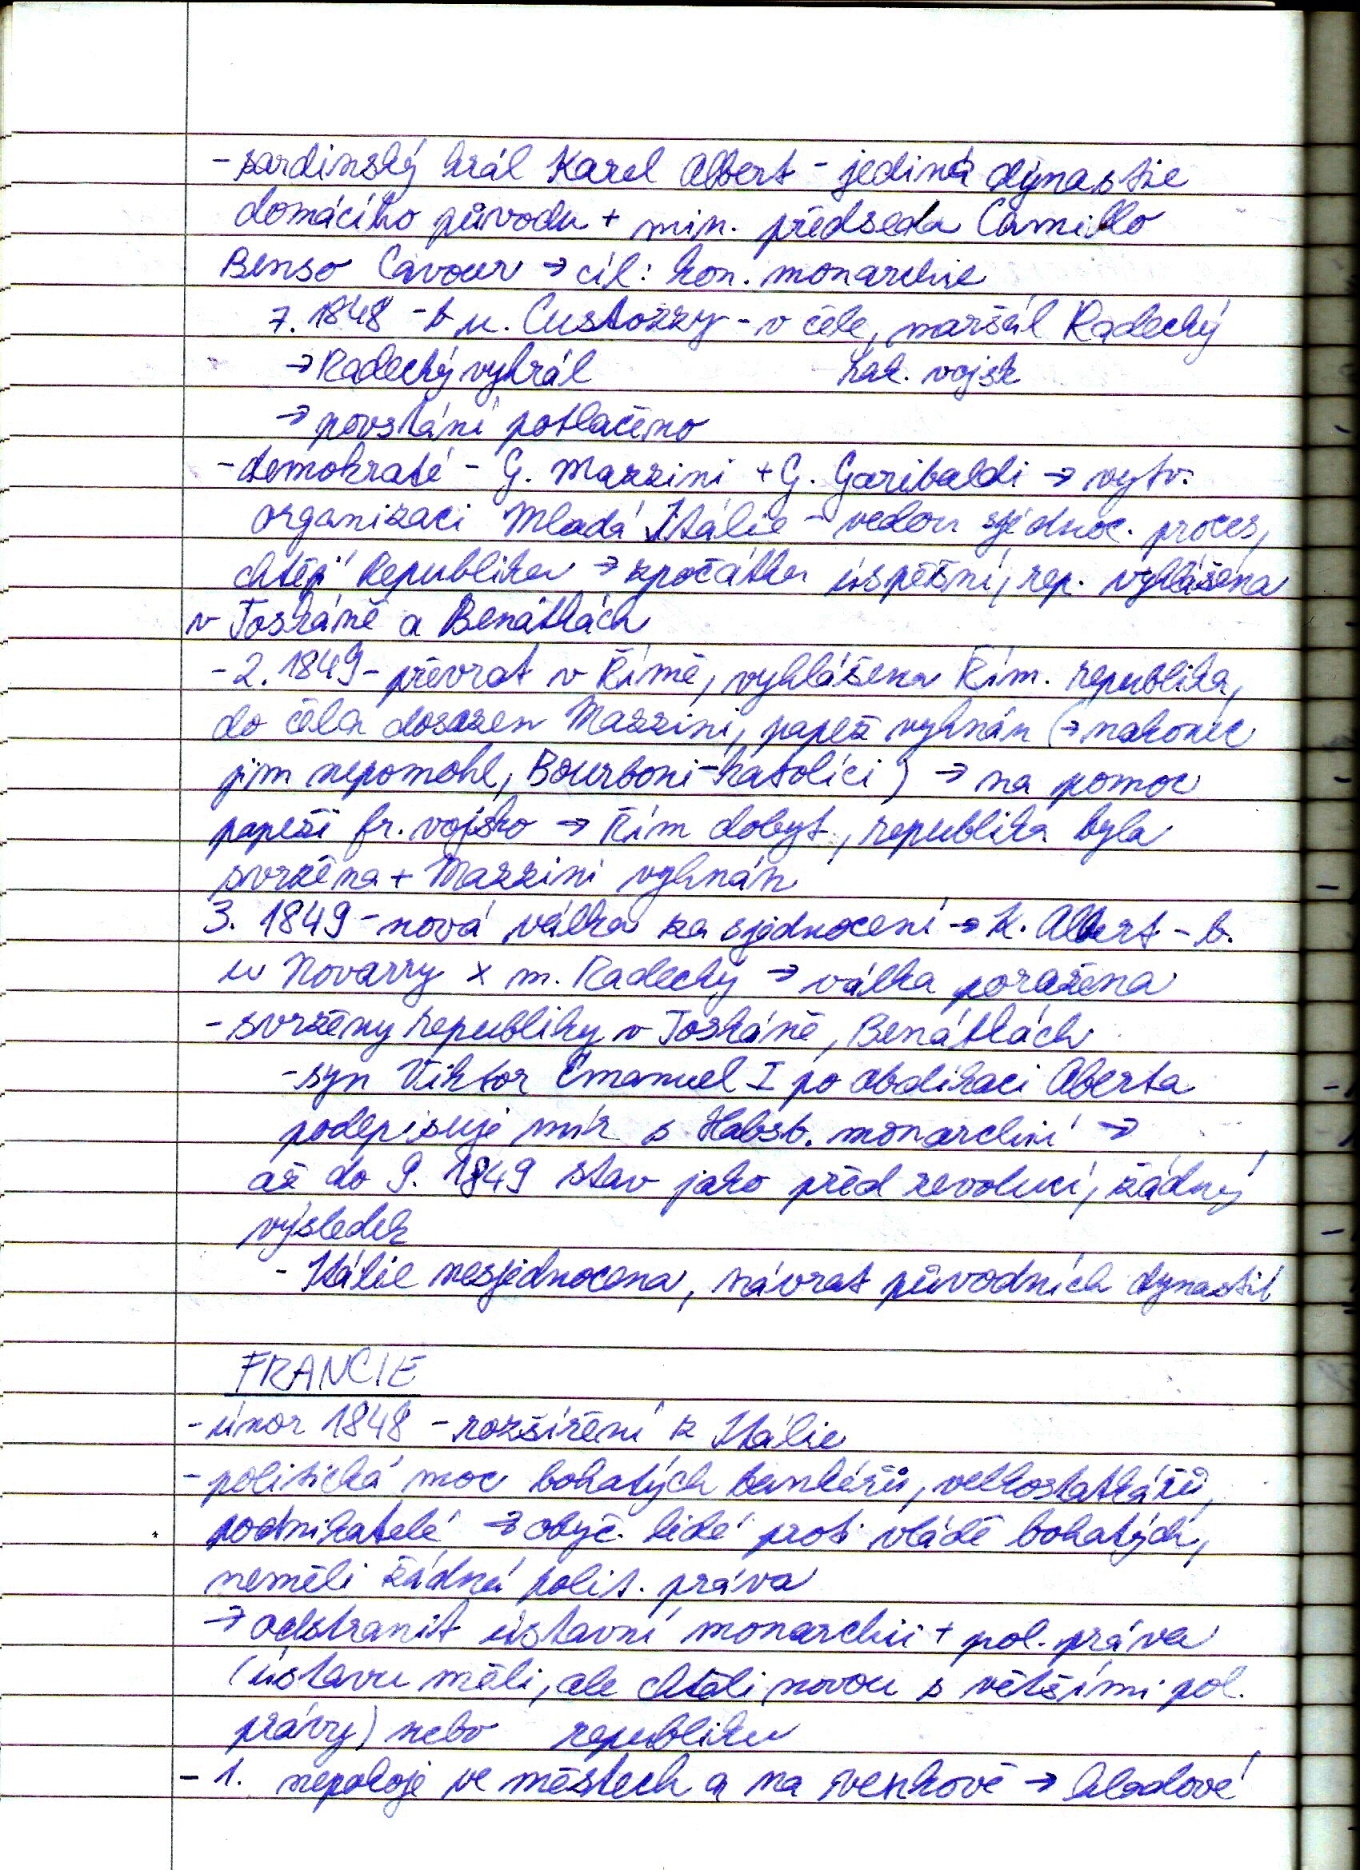 - sardinský král Karel Albert - jediná dynastie
domácího původu + min. předseda Camillo
Benso Cavour → cíl: kon. monarchie
7. 1848 - b u. Custozzy - v čele, maršál Radecký
→ Radecký vyhrál hab. vojsk
→ povstání potlačeno
- demokraté - G. Mazzini + G. Garibaldi → vytv.
organizaci Mladá Itálie - vedou sjednoc. proces,
chtějí republiku → zpočátku úspěšní, rep. vyhlášena
v Toskáně a Benátkách
- 2. 1849 - převrat v Římě, vyhlášena Řím. republika,
do čela dosazen Mazzini, papež vyhnán (→ nakonec
jim nepomohl, Bourboni - katolíci) → na pomoc
papeži fr. vojsko → Řím dobyt, republika byla
svržena + Mazzini vyhnán
3. 1849 - nová válka za sjednocení → K. Albert - b.
u Novarry x m. Radecký → válka poražena
- svrženy republiky v Toskáně, Benátkách
- syn Viktor Emanuel I po abdikaci Aberta
podepisuje mír s Habsb. monarchií →
až do 9. 1849 stav jako před revolucí, žádný
výsledek
- Itálie nesjednocena, návrat původních dynastií
FRANCIE
- únor 1848 - rozšíření z Itálie
- politická moc bohatých bankéřů, velkostatkářů,
podnikatelé → obyč. lidé proti vládě bohatých,
neměli žádná polit. práva
→ odstranit ústavní monarchii + pol. práva
(ústavu měli, ale chtěli novou s většími pol.
právy) nebo republiku
- 1. nepokoje ve městech a na venkově → hladové